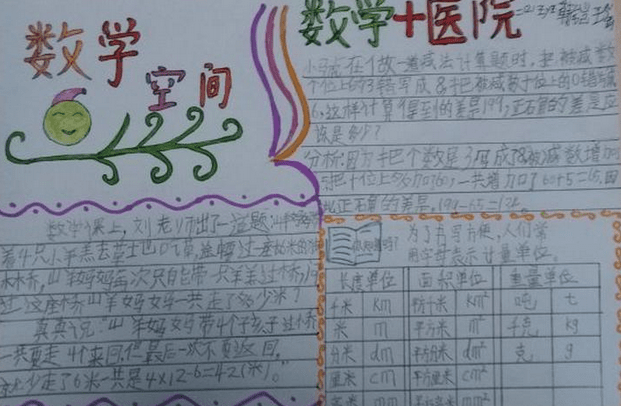 数学
空间
数学+医院
小马虎在做一道减法计算题时,把被减数
个位上的3错写成8,把被减数十位上的0错写成
6。这样计算得到的差是199,正确的差应
该是多少?
分析:因为把个数是3写成8被减数增加
5,把十位上0 一共增力口了60+5=65,因
此正确的差是,199-65=134。
数学课上,刘老师出了一道题:
着4只小羊羔去草士也口乞草,途中
木桥,山羊妈妈每次只能带一只羊羔过桥,
过这座桥山羊妈妈一共走了多少米?
真真说:山羊妈妈带4个孩子过桥
一共要走4个来回,但最后一次不要返回,
京尤少走了6米一共是4×12-6=42(米)。
为了书写方便,人们常
用字母表示计量单位。
长度单位 面积单位 重量单位
千米 km 平方千米 km² 吨 t
米 m 平方米 m² 千克 kg
分米 dm 平方分米 dm² 克 g
厘米 cm 平方厘米 cm²
毫米 mm 平方毫米 mm²